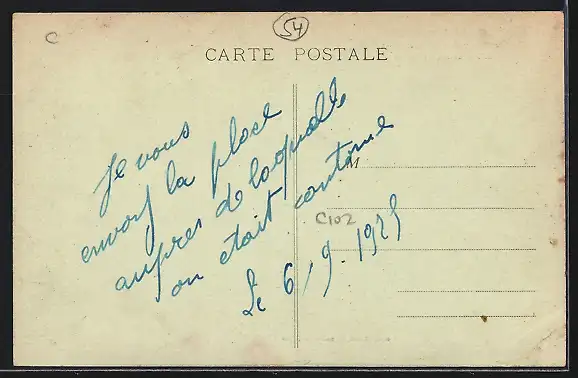 54
C
CARTE POSTALE
M
Je vous
envoy la place
aupres de laquelle
on etait
C102
Le 6-9-1925